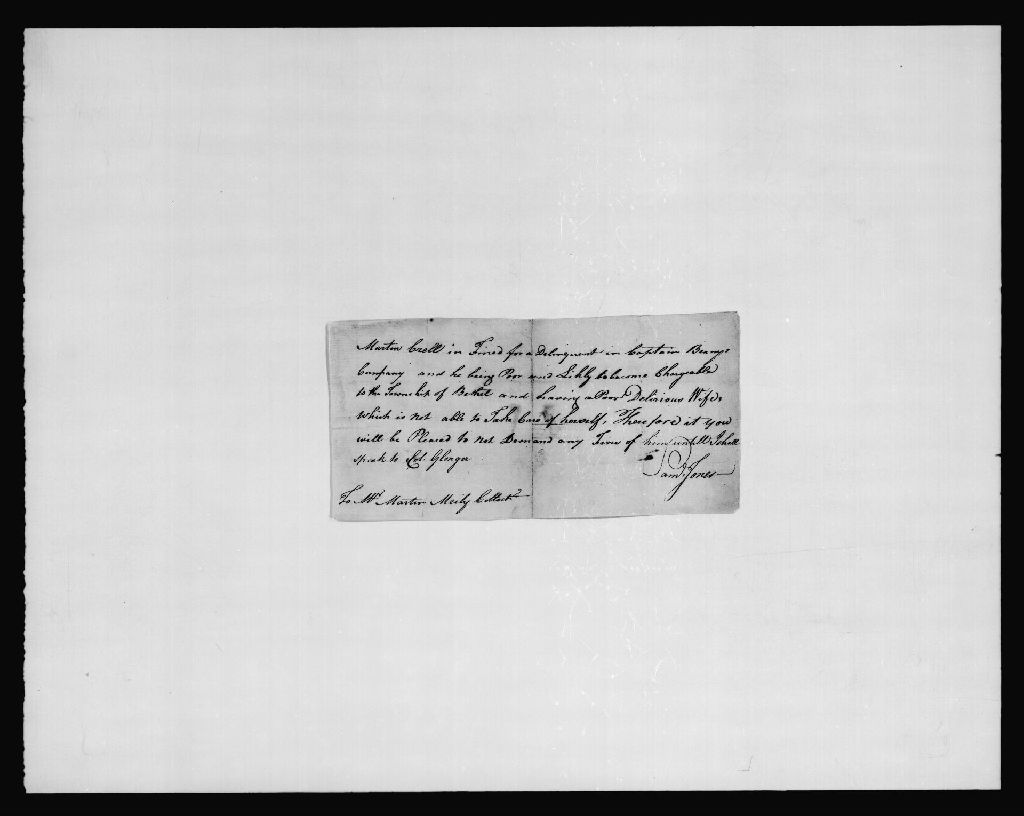 Martin Croll is Fined for a Delinquent in Captain Beamps
Company and he being Poor and Likly to become Chargeable
to the Township of Bethel and having a Poor Delirious Wife
which is not able to Take Care of herself. Therefore if you
will be Pleased to not Demand any Fines of him until I shall
speak to Col. Glonger
Saml Jones
To Mr Martin Meily Collectr